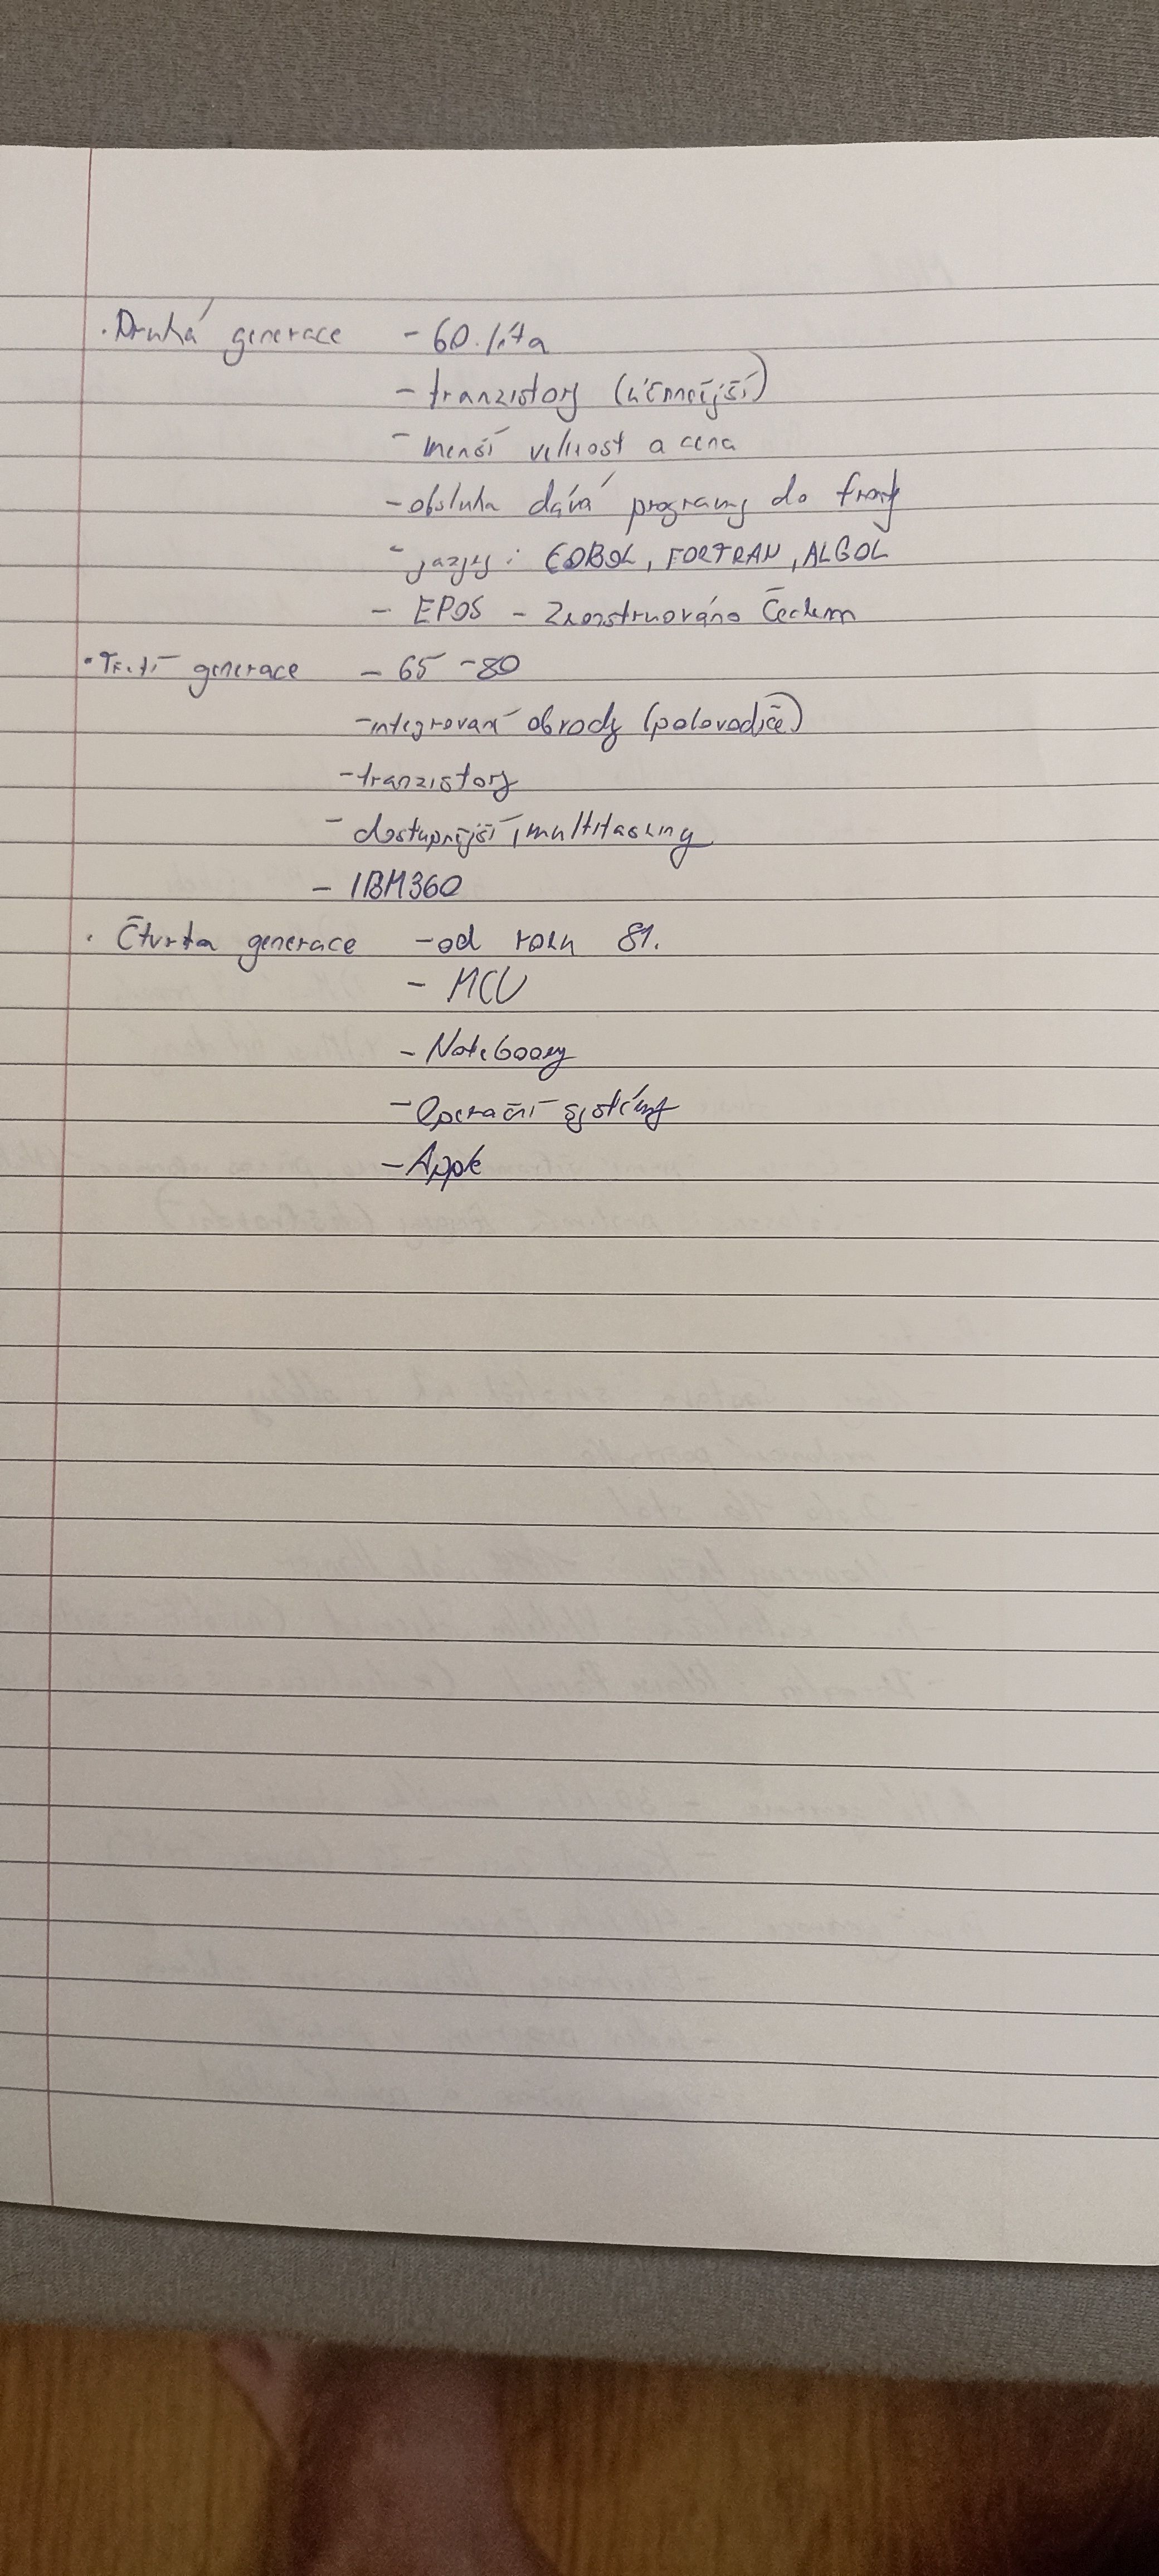 · Druhá generace - 60. léta
- tranzistory (účinnější)
- menší velikost a cena
- obsluha dává programy do fronty
- jazyky: COBOL, FORTRAN, ALGOL
- EPOS - Zkonstruováno Čechem
· Třetí generace - 65 - 80
- integrované obvody (polovodiče)
- tranzistory
- dostupnější, multitasking
- IBM360
· Čtvrta generace - od roku 81.
- MCU
- Notebooky
- Operační systémy
- Apple